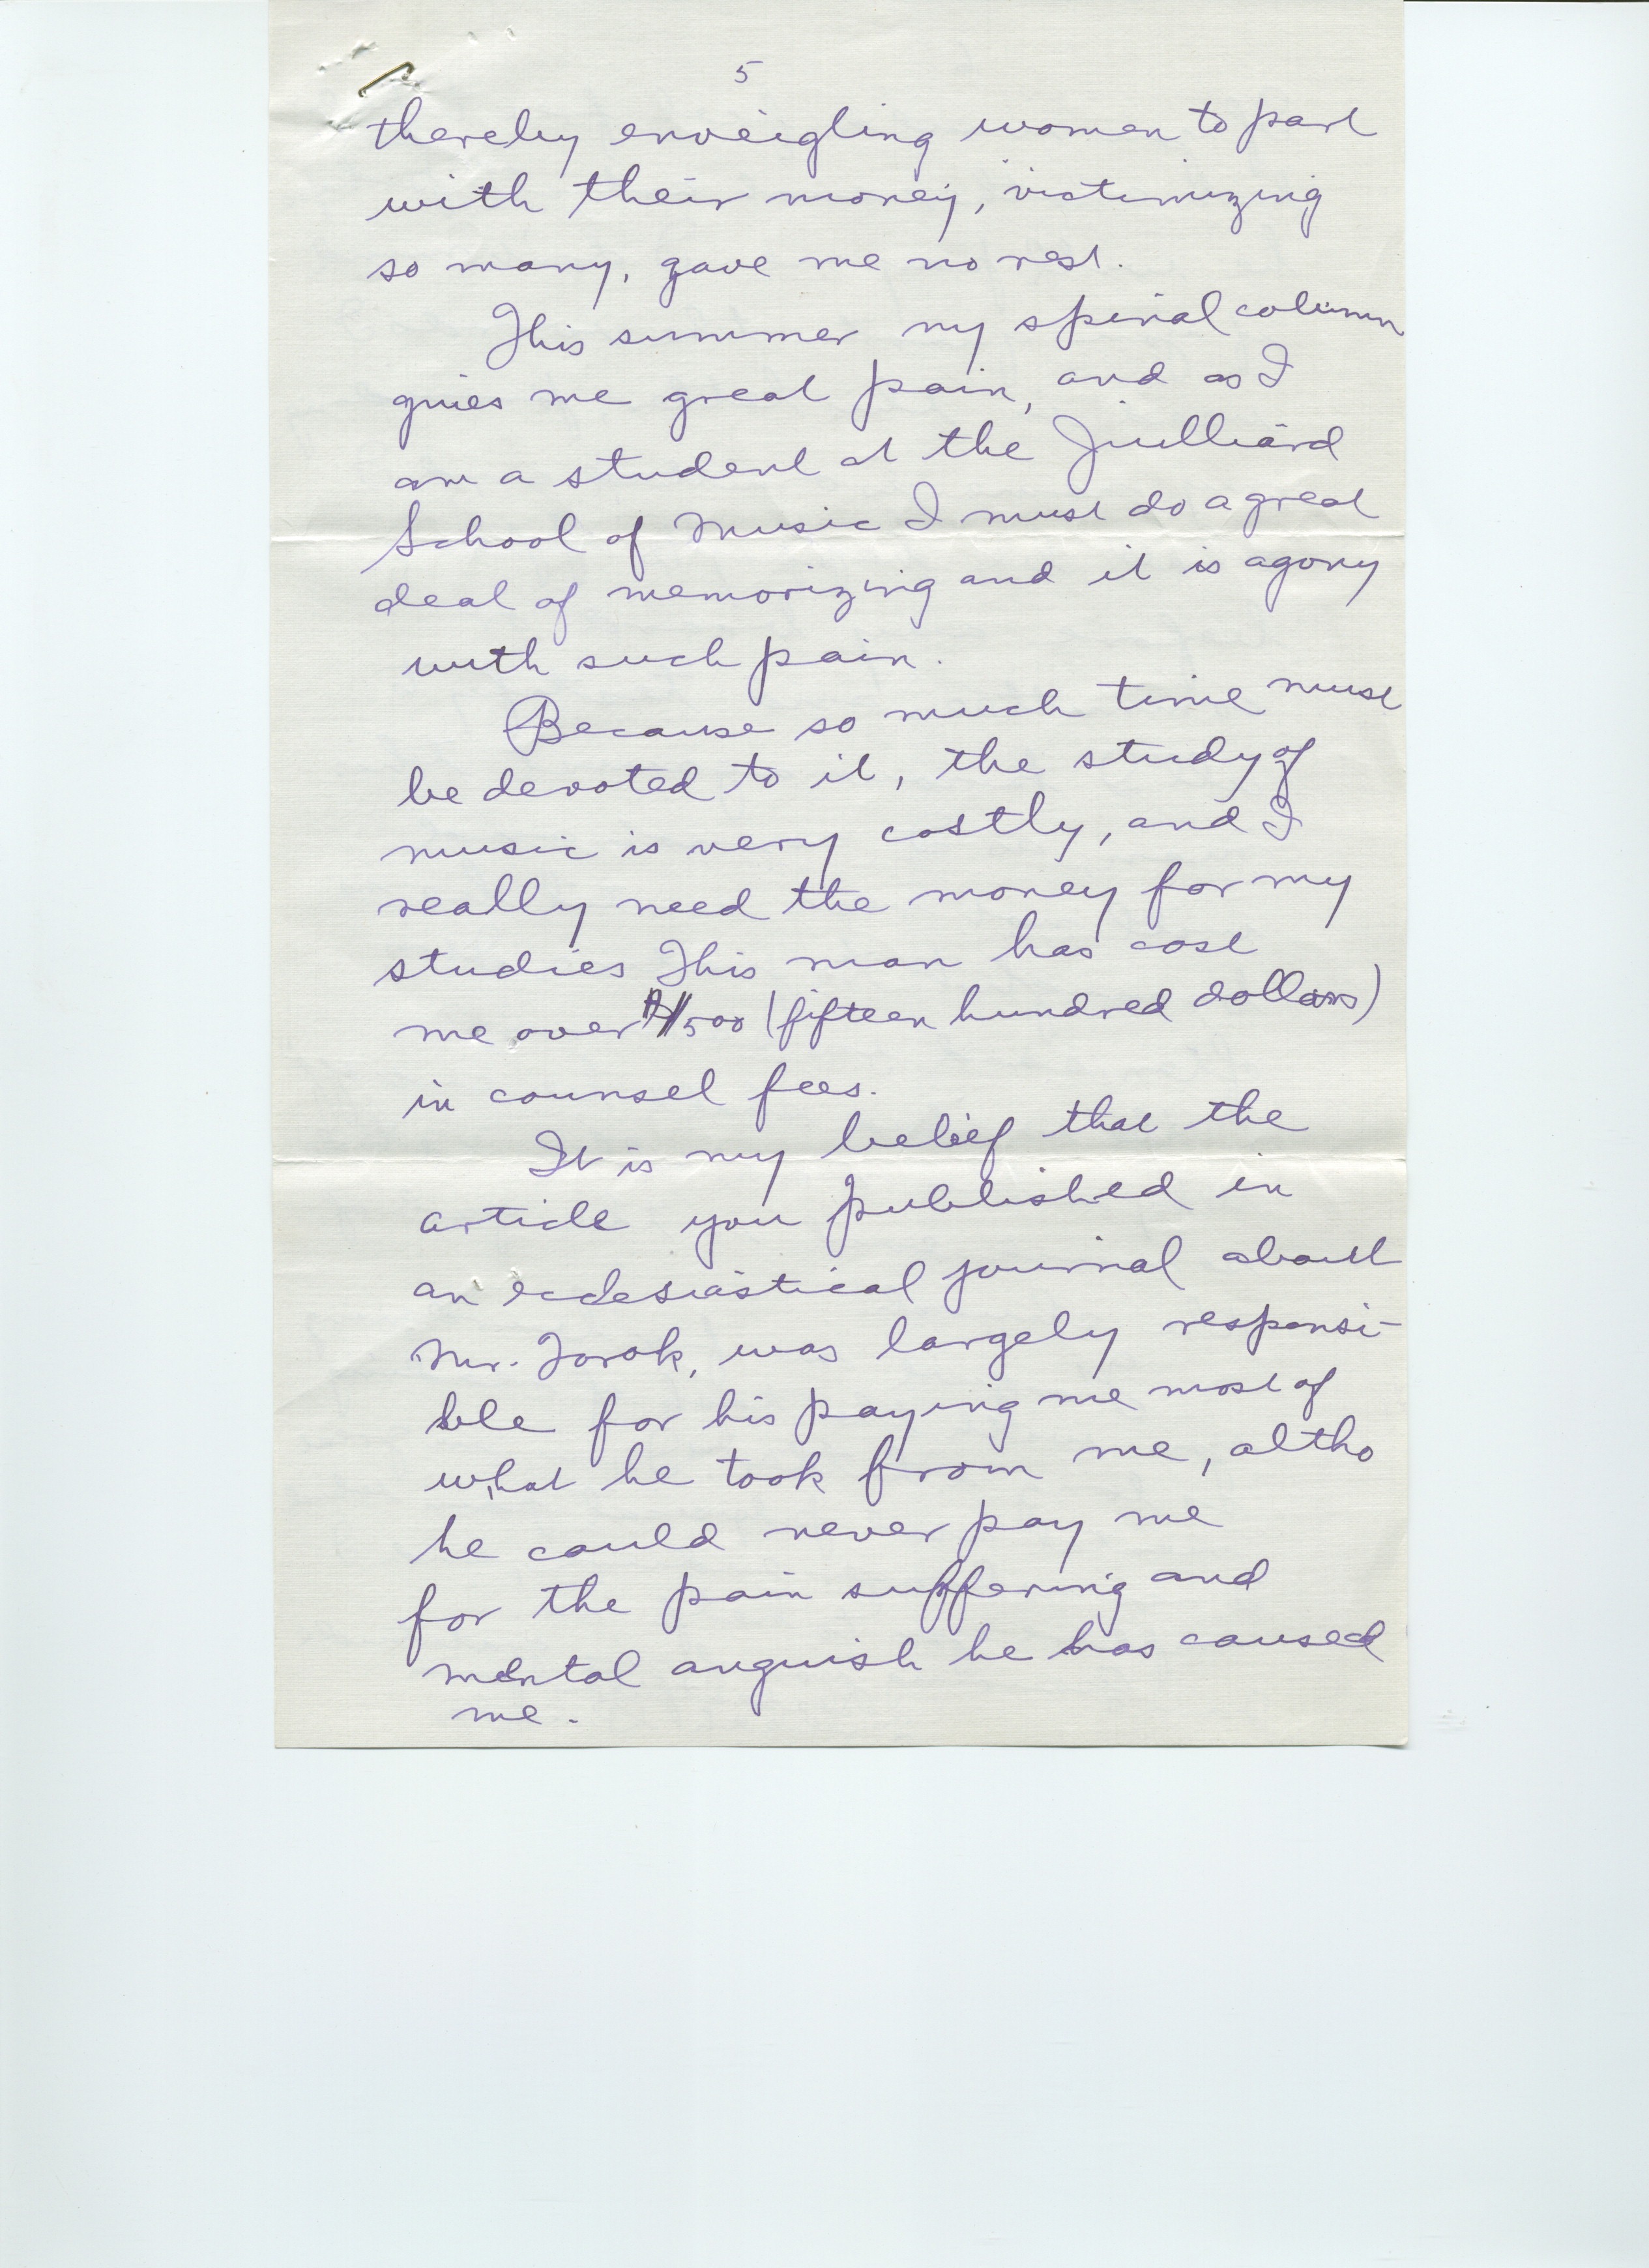 5
thereby enveigling women to part
with their money, victimizing
so many, gave me no rest.
This summer my spinal column
gives me great pain, and as I
am a student at the Juilliard
School of Music I must do a great
deal of memorizing and it is agony
with such pain.
Because so much time must
be devoted to it, the study of
music is very costly, and I
really need the money for my
studies This man has cost
me over $1500 (fifteen hundred dollars)
in counsel fees.
It is my belief that the
article you published in
an ecclesiastical journal about
Mr. Torok, was largely responsi-
ble for his paying me most of
what he took from me, altho
he could never pay me
for the pain suffering and
mental anguish he has caused
me.